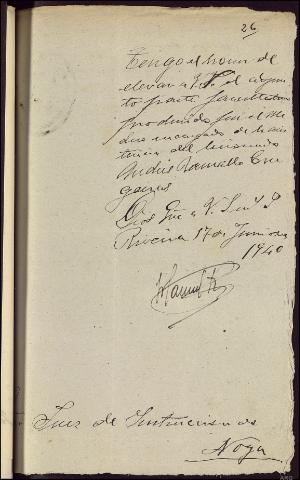 26
Tengo el honor de
elevar a V.S. el adjun
to parte facultativo
producido por el Mé
dico encargado de la asis
tencia del lesionado
Andrés Ramallo
Dios gue a V.S. 
Riveira 17 de Junio de
1940
Juez de Instrucción de
Noya